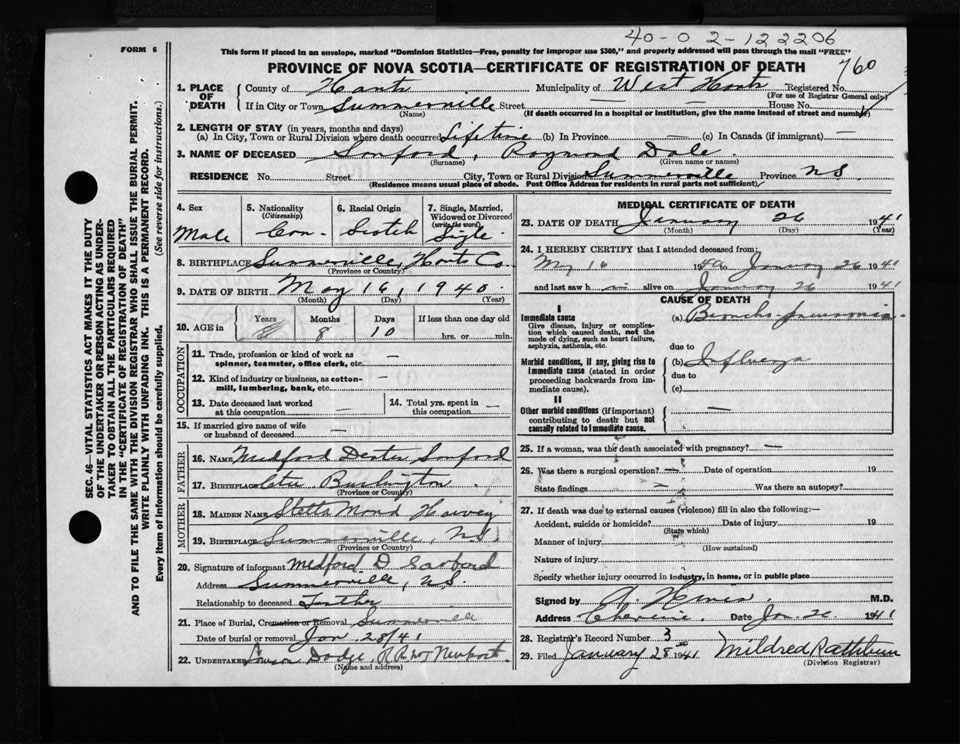 40-02-122206
FORM 6
This form if placed in an envelope, marked "Dominion Statistics—Free, penalty for improper use $300," and properly addressed will pass through the mail "FREE"
PROVINCE OF NOVA SCOTIA—CERTIFICATE OF REGISTRATION OF DEATH
760
1. PLACE OF DEATH
County of Hants Municipality of West Hants Registered No.
(For use of Registrar General only)
If in City or Town Summerville Street — House No. —
(Name) (If death occurred in a hospital or institution, give the name instead of street and number)
2. LENGTH OF STAY (in years, months and days)
(a) In City, Town or Rural Division where death occurred Lifetime (b) In Province — (c) In Canada (if immigrant) —
3. NAME OF DECEASED Sanford, Raymond Dale
(Surname) (Given name or names)
RESIDENCE No. Street City, Town or Rural Division Summerville Province N.S.
(Residence means usual place of abode. Post Office Address for residents in rural parts not sufficient)
4. Sex Male
5. Nationality (Citizenship) Can-
6. Racial Origin Scotch
7. Single, Married, Widowed or Divorced (write the word) Sigle
8. BIRTHPLACE Summerville, Hants Co.
(Province or Country)
9. DATE OF BIRTH May 16, 1940
(Month) (Day) (Year)
10. AGE in Years Months 8 Days 10 If less than one day old hrs. or min.
OCCUPATION
11. Trade, profession or kind of work as spinner, teamster, office clerk, etc. —
12. Kind of industry or business, as cotton-mill, lumbering, bank, etc. —
13. Date deceased last worked at this occupation —
14. Total yrs. spent in this occupation —
15. If married give name of wife or husband of deceased —
FATHER
16. Name Medford Dexter Sanford
17. Birthplace Burlington
(Province or Country)
MOTHER
18. Maiden Name Maud Harvey
19. Birthplace Summerville, N.S.
(Province or Country)
20. Signature of informant Medford D Sanford
Address Summerville, N.S.
Relationship to deceased Father
21. Place of Burial, Cremation or Removal Summerville
Date of burial or removal Jan. 28/41
22. Undertaker Dodge, Newport
(Name and address)
MEDICAL CERTIFICATE OF DEATH
23. DATE OF DEATH January 26 1941
(Month) (Day) (Year)
24. I HEREBY CERTIFY that I attended deceased from:
May 16 1940 to January 26 1941
and last saw h im alive on January 26 1941
CAUSE OF DEATH
Immediate cause
Give disease, injury or complication which caused death, not the mode of dying, such as heart failure, asphyxia, asthenia, etc.
(a) Broncho pneumonia
due to
Morbid conditions, if any, giving rise to immediate cause (stated in order proceeding backwards from immediate cause).
(b) Influenza
due to
(c)
II
Other morbid conditions (if important) contributing to death but not causally related to immediate cause. —
25. If a woman, was the death associated with pregnancy? —
26. Was there a surgical operation? — Date of operation 19
State findings — Was there an autopsy?
27. If death was due to external causes (violence) fill in also the following:—
Accident, suicide or homicide? Date of injury 19
(State which)
Manner of injury
(How sustained)
Nature of injury
Specify whether injury occurred in industry, in home, or in public place
Signed by M.D.
Address Date Jan. 1941
28. Registrar's Record Number 3
29. Filed January 28th 1941 Mildred Rathbun
(Division Registrar)
SEC. 46—VITAL STATISTICS ACT MAKES IT THE DUTY
OF THE UNDERTAKER OR PERSON ACTING AS UNDER-
TAKER TO OBTAIN ALL THE PARTICULARS REQUIRED
IN THE "CERTIFICATE OF REGISTRATION OF DEATH"
AND TO FILE THE SAME WITH THE DIVISION REGISTRAR WHO SHALL ISSUE THE BURIAL PERMIT.
WRITE PLAINLY WITH UNFADING INK. THIS IS A PERMANENT RECORD.
Every item of information should be carefully supplied. (See reverse side for instructions.)